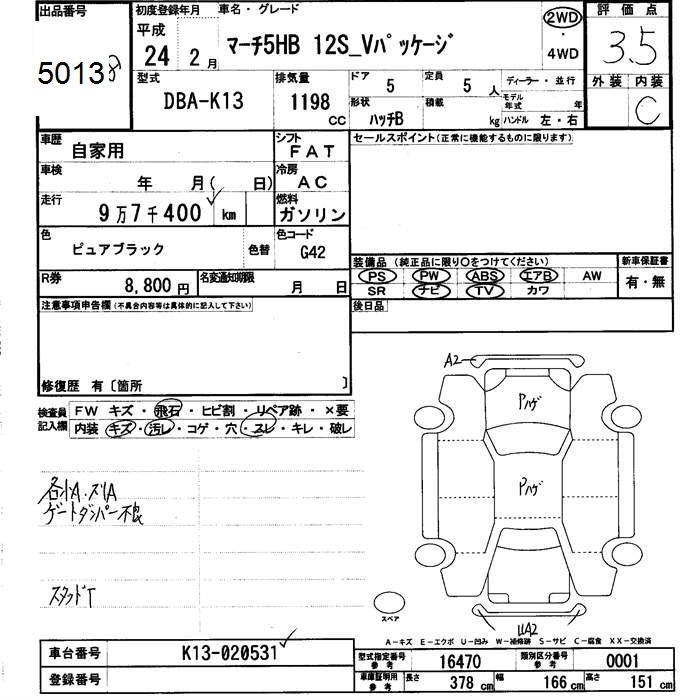 出品番号
50138
初度登録年月
平成
24 2月
車名・グレード
マーチ5HB 12S_Vパッケージ
2WD
・
4WD
評価点
3.5
外装 内装
C
型式
DBA-K13
排気量
1198
CC
ドア
5
定員
5 人
形状
ハッチB
積載
kg
ディーラー・並行
モデル年式 年
ハンドル 左・右
車歴
自家用
シフト
FAT
車検
年 月( 日)
冷房
AC
走行
9万7千400 km
燃料
ガソリン
色
ピュアブラック
色替
色コード
G42
R券
8,800円
名変通知期限
月 日
セールスポイント(正常に機能するものに限ります)
装備品(純正品に限り○をつけてください)
PS PW ABS エアB AW
SR ナビ TV カワ
新車保証書
有・無
後日品
注意事項申告欄(不具合内容等は具体的に記入して下さい)
修復歴 有〔箇所 〕
検査員
記入欄
FW キズ・飛石・ヒビ割・リペア跡・×要
内装 キズ・汚レ・コゲ・穴・スレ・キレ・破レ
各小A・スリA
ゲートダンパー不良
スタッドT
A2
Pハゲ
Pハゲ
UA2
スペア
A-キズ E-エクボ U-凹み W-補修跡 S-サビ C-腐食 XX-交換済
車台番号
K13-020531
登録番号
型式指定番号
参考
16470
類別区分番号
参考
0001
車庫証明用
参考
長さ 378 cm 幅 166 cm 高さ 151 cm